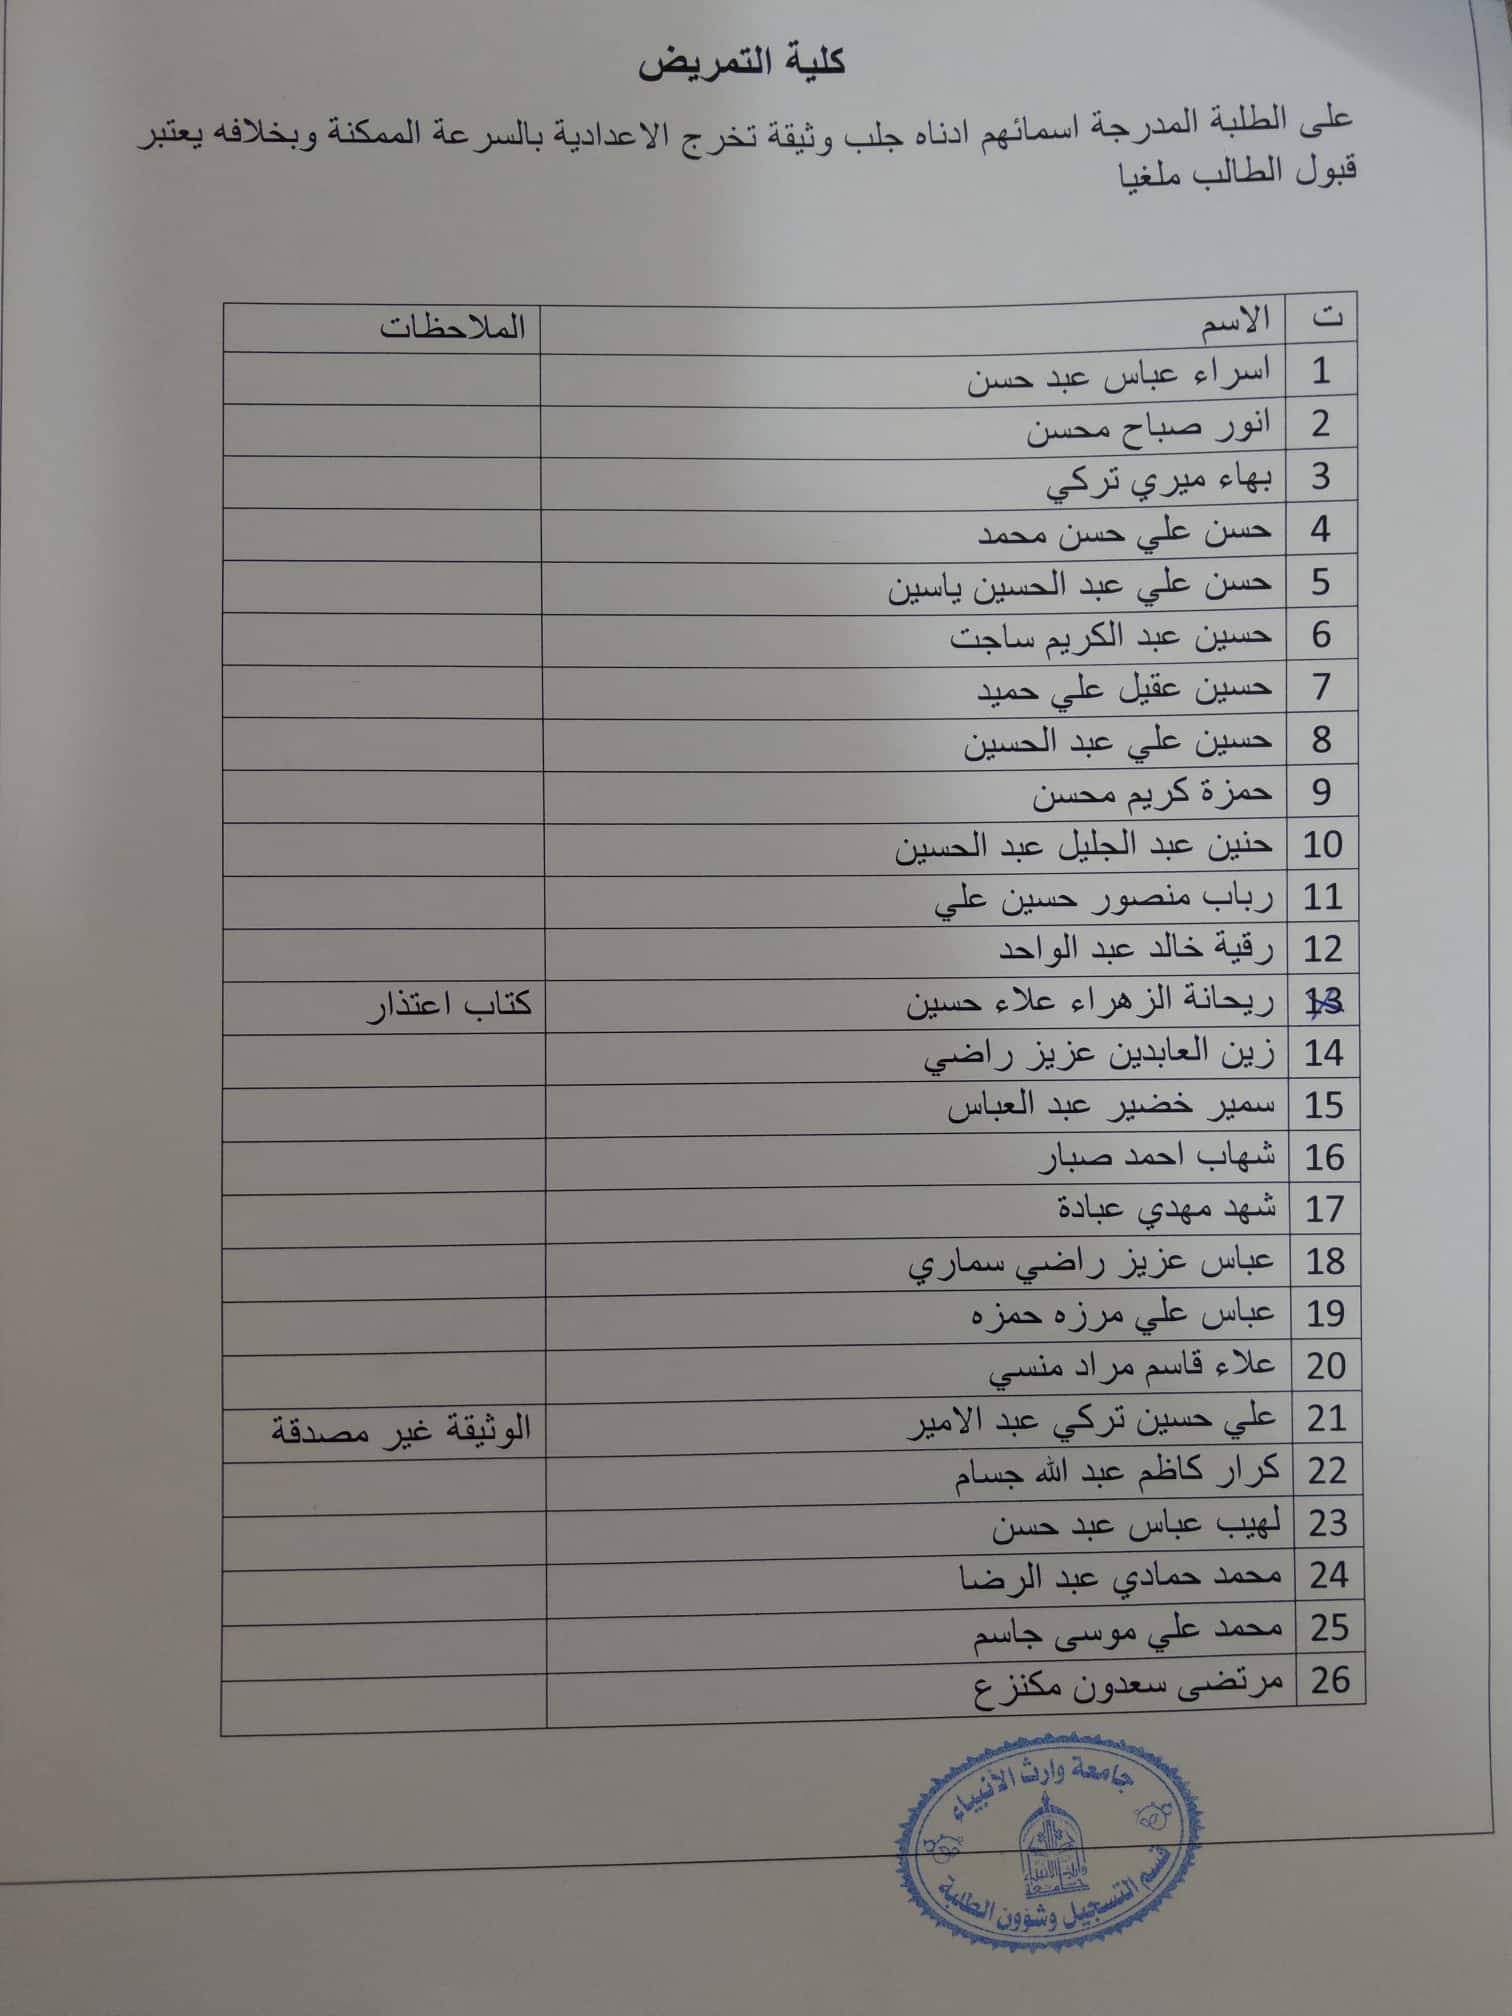 كلية التمريض
على الطلبة المدرجة اسمائهم ادناه جلب وثيقة تخرج الاعدادية بالسرعة الممكنة وبخلافه يعتبر
قبول الطالب ملغيا
ت الاسم الملاحظات
1 اسراء عباس عبد حسن
2 انور صباح محسن
3 بهاء ميري تركي
4 حسن علي حسن محمد
5 حسن علي عبد الحسين ياسين
6 حسين عبد الكريم ساجت
7 حسين عقيل علي حميد
8 حسين علي عبد الحسين
9 حمزة كريم محسن
10 حنين عبد الجليل عبد الحسين
11 رباب منصور حسين علي
12 رقية خالد عبد الواحد
13 ريحانة الزهراء علاء حسين كتاب اعتذار
14 زين العابدين عزيز راضي
15 سمير خضير عبد العباس
16 شهاب احمد صبار
17 شهد مهدي عبادة
18 عباس عزيز راضي سماري
19 عباس علي مرزه حمزه
20 علاء قاسم مراد منسي
21 علي حسين تركي عبد الامير الوثيقة غير مصدقة
22 كرار كاظم عبد الله جسام
23 لهيب عباس عبد حسن
24 محمد حمادي عبد الرضا
25 محمد علي موسى جاسم
26 مرتضى سعدون مكنزع
جامعة وارث الأنبياء
قسم التسجيل وشؤون الطلبة